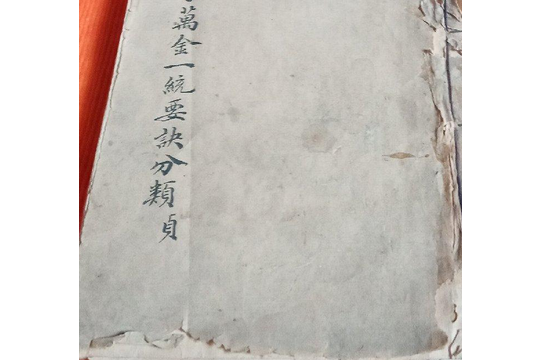 萬金一統要訣分類貞